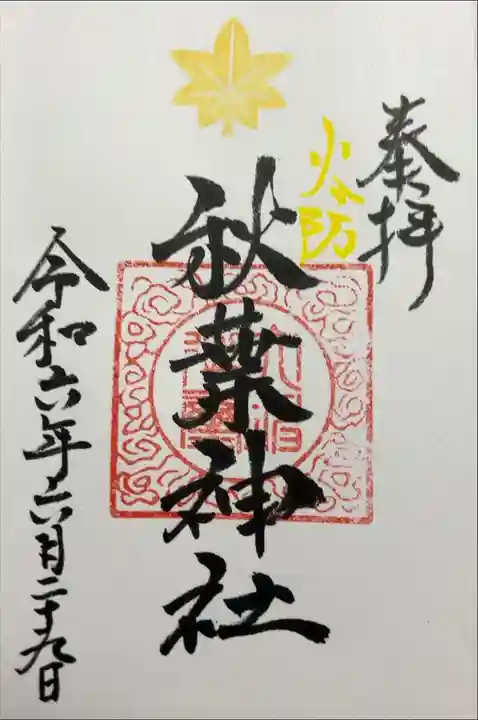 奉拝
火防
秋葉神社
令和六年六月二十九日